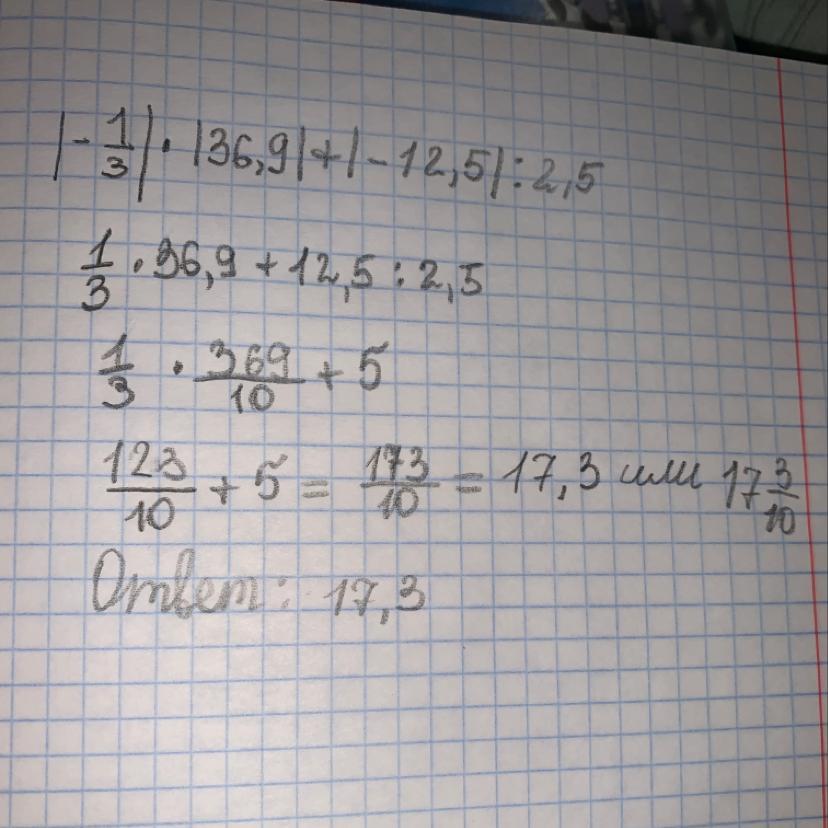 |-1/3|·|36,9|+|-12,5|:2,5
1/3·36,9+12,5:2,5
1/3·369/10+5
123/10+5=173/10=17,3 или 17 3/10
Ответ: 17,3